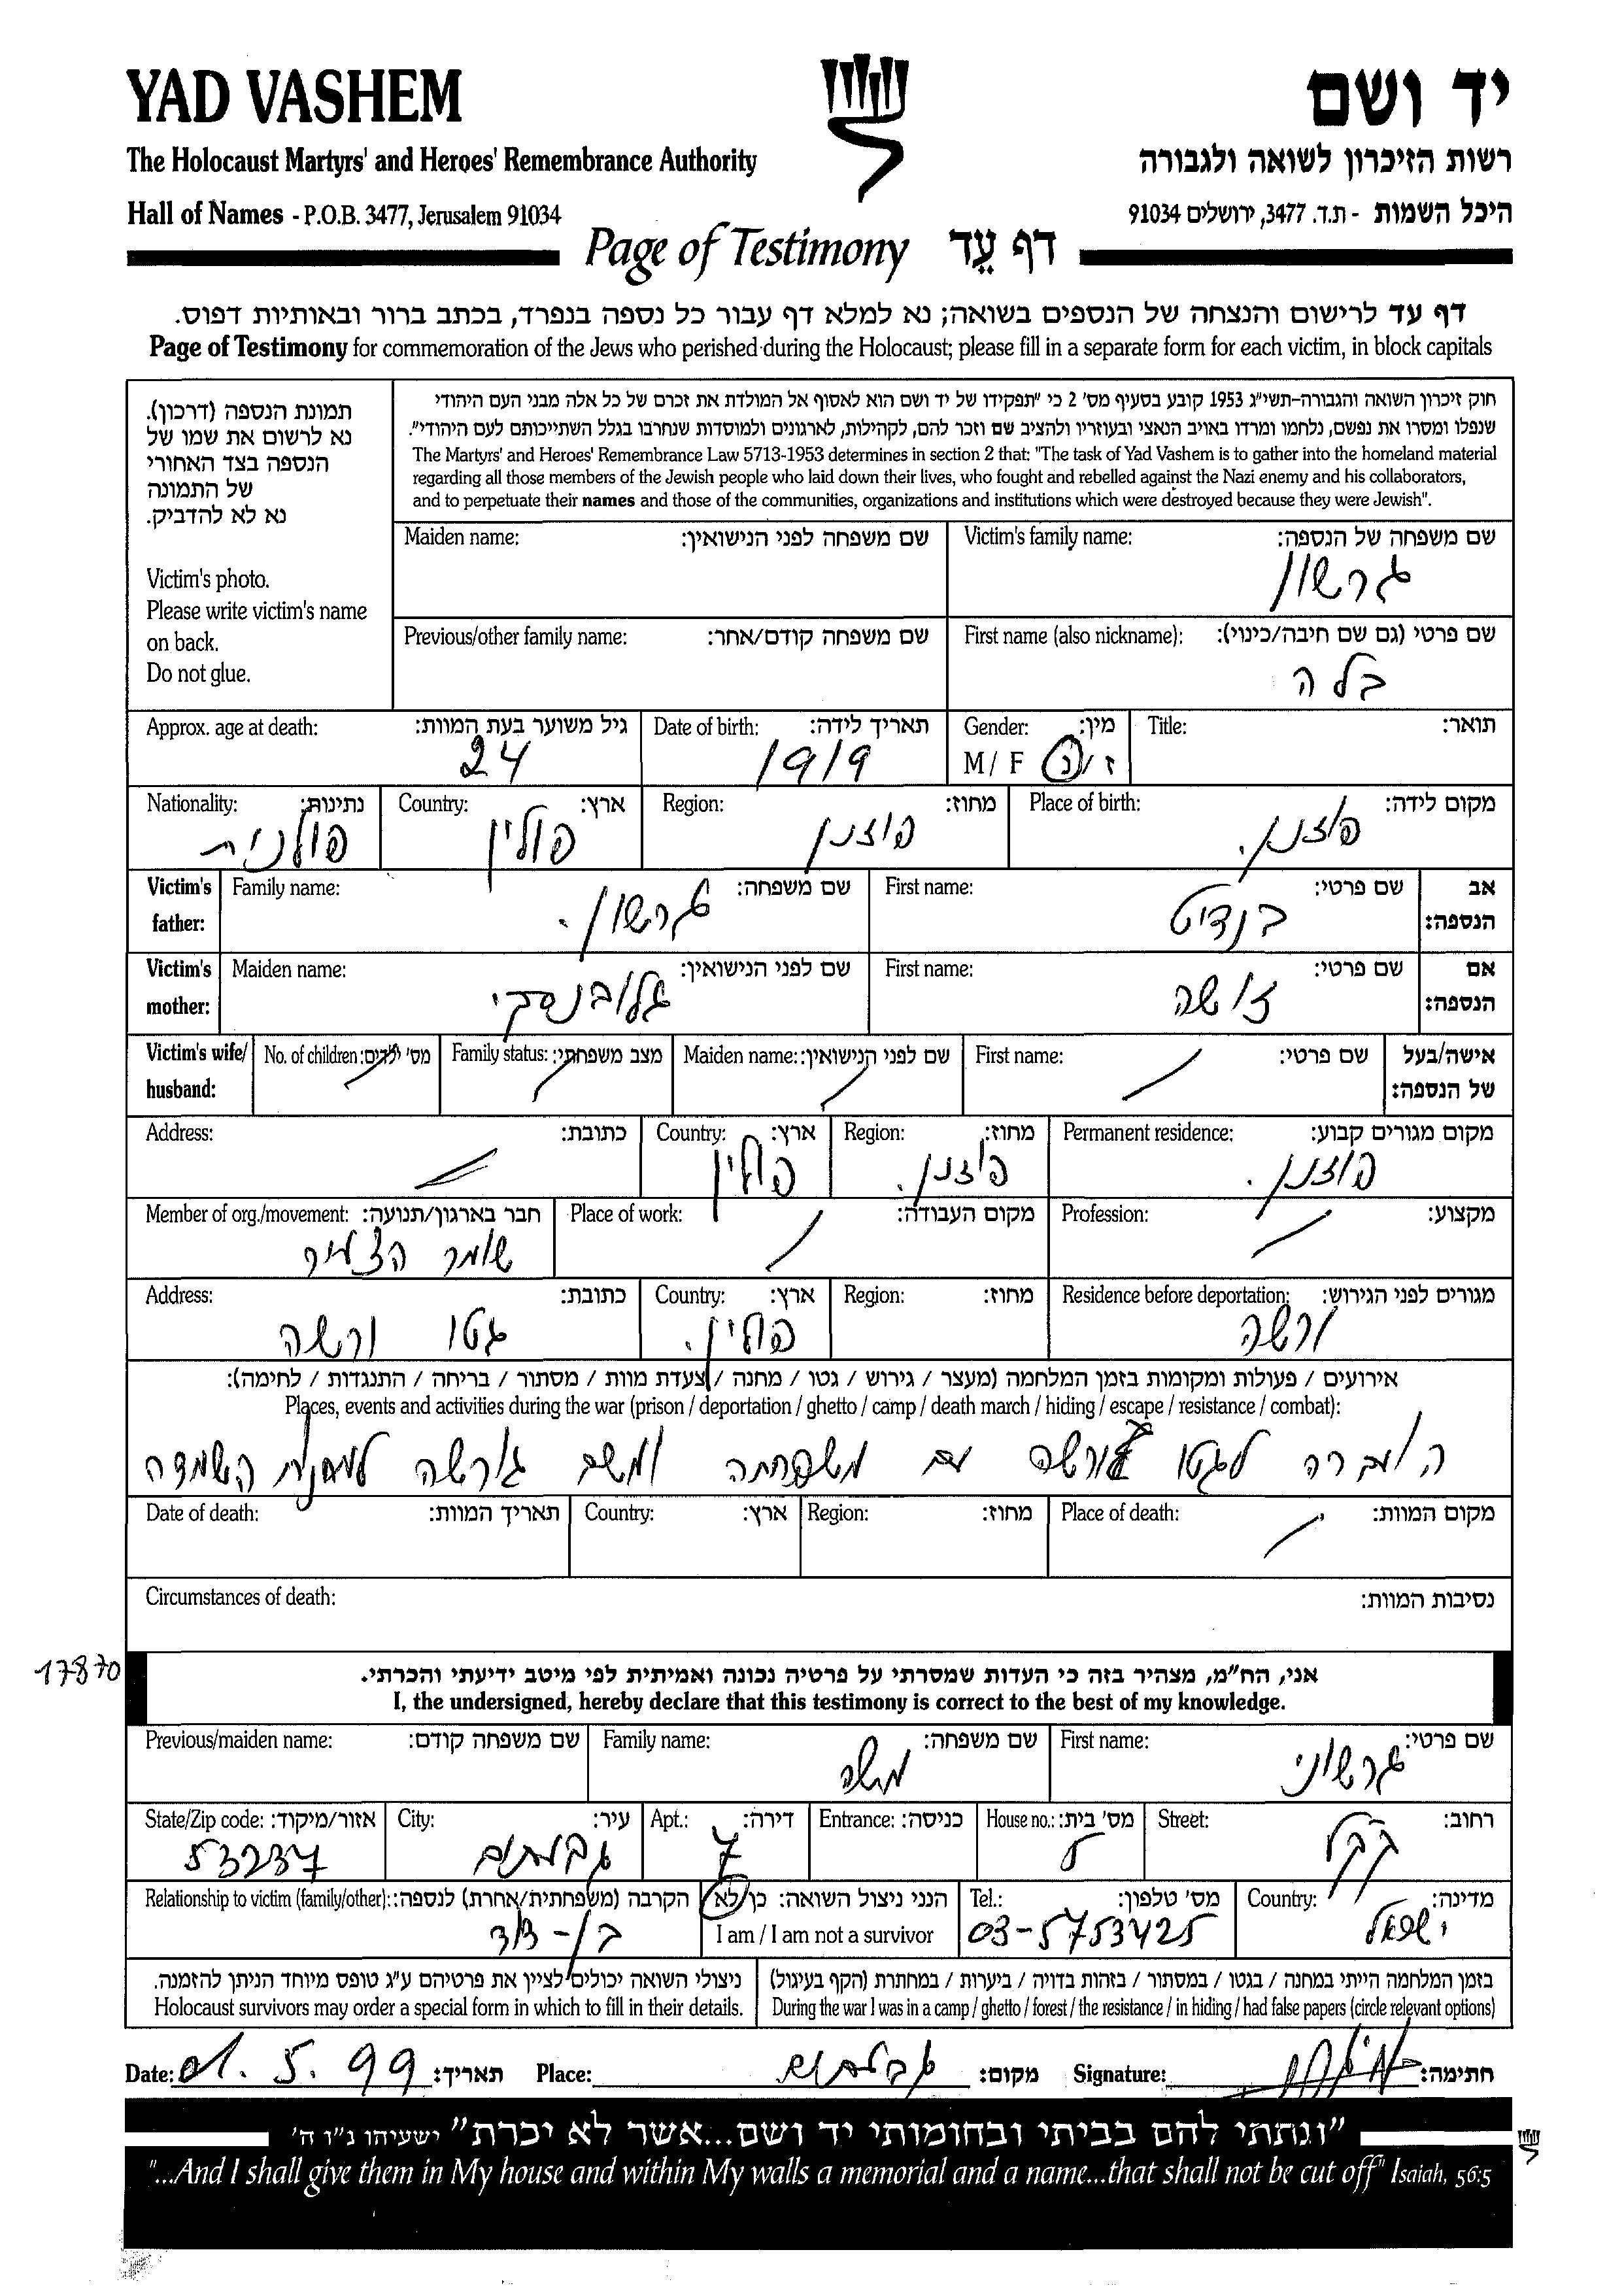 YAD VASHEM
יד ושם
The Holocaust Martyrs' and Heroes' Remembrance Authority
רשות הזיכרון לשואה ולגבורה
Hall of Names - P.O.B. 3477, Jerusalem 91034
היכל השמות - ת.ד. 3477, ירושלים 91034
Page of Testimony דף עֵד
דף עד לרישום והנצחה של הנספים בשואה; נא למלא דף עבור כל נספה בנפרד, בכתב ברור ובאותיות דפוס.
Page of Testimony for commemoration of the Jews who perished during the Holocaust; please fill in a separate form for each victim, in block capitals
תמונת הנספה (דרכון).
נא לרשום את שמו של
הנספה בצד האחורי
של התמונה
נא לא להדביק.
Victim's photo.
Please write victim's name
on back.
Do not glue.
חוק זיכרון השואה והגבורה-תשי"ג 1953 קובע בסעיף מס' 2 כי "תפקידו של יד ושם הוא לאסוף אל המולדת את זכרם של כל אלה מבני העם היהודי
שנפלו ומסרו את נפשם, נלחמו ומרדו באויב הנאצי ובעוזריו ולהציב שם וזכר להם, לקהילות, לארגונים ולמוסדות שנחרבו בגלל השתייכותם לעם היהודי".
The Martyrs' and Heroes' Remembrance Law 5713-1953 determines in section 2 that: "The task of Yad Vashem is to gather into the homeland material
regarding all those members of the Jewish people who laid down their lives, who fought and rebelled against the Nazi enemy and his collaborators,
and to perpetuate their names and those of the communities, organizations and institutions which were destroyed because they were Jewish".
Victim's family name: שם משפחה של הנספה:
גרשון
Maiden name: שם משפחה לפני הנישואין:
First name (also nickname): שם פרטי (גם שם חיבה/כינוי):
בלה
Previous/other family name: שם משפחה קודם/אחר:
Title: תואר:
Gender: מין:
M / F ז / נ
Date of birth: תאריך לידה:
1919
Approx. age at death: גיל משוער בעת המוות:
24
Place of birth: מקום לידה:
פוזנן.
Region: מחוז:
פוזנן
Country: ארץ:
פולין
Nationality: נתינות:
פולנית
Victim's father: אב הנספה:
First name: שם פרטי:
בנדיט
Family name: שם משפחה:
גרשון.
Victim's mother: אם הנספה:
First name: שם פרטי:
זושה
Maiden name: שם לפני הנישואין:
Victim's wife/husband: אישה/בעל של הנספה:
First name: שם פרטי:
Maiden name: שם לפני הנישואין:
Family status: מצב משפחתי:
No. of children: מס' ילדים:
Permanent residence: מקום מגורים קבוע:
פוזנן.
Region: מחוז:
פוזנן.
Country: ארץ:
פולין
Address: כתובת:
Profession: מקצוע:
Place of work: מקום העבודה:
Member of org./movement: חבר בארגון/תנועה:
שומר הצעיר
Residence before deportation: מגורים לפני הגירוש:
ורשה
Region: מחוז:
Country: ארץ:
פולין.
Address: כתובת:
גטו ורשה
אירועים / פעולות ומקומות בזמן המלחמה (מעצר / גירוש / גטו / מחנה / צעדת מוות / מסתור / בריחה / התנגדות / לחימה):
Places, events and activities during the war (prison / deportation / ghetto / camp / death march / hiding / escape / resistance / combat):
הועברה לגטו ורשה עם משפחתה ומשם למחנות השמדה
Place of death: מקום המוות:
Region: מחוז:
Country: ארץ:
Date of death: תאריך המוות:
Circumstances of death: נסיבות המוות:
17870
אני, הח"מ, מצהיר בזה כי העדות שמסרתי על פרטיה נכונה ואמיתית לפי מיטב ידיעתי והכרתי.
I, the undersigned, hereby declare that this testimony is correct to the best of my knowledge.
First name: שם פרטי:
גרשוני
Family name: שם משפחה:
משה
Previous/maiden name: שם משפחה קודם:
Street: רחוב:
House no.: מס' בית:
Entrance: כניסה:
Apt.: דירה:
7
City: עיר:
גבעתיים
State/Zip code: אזור/מיקוד:
53237
Country: מדינה:
ישראל
Tel.: מס' טלפון:
03-5753425
הנני ניצול השואה: כן / לא
I am / I am not a survivor
Relationship to victim (family/other): הקרבה (משפחתית/אחרת) לנספה:
בן-דוד
בזמן המלחמה הייתי במחנה / בגטו / במסתור / בזהות בדויה / ביערות / במחתרת (הקף בעיגול)
During the war I was in a camp / ghetto / forest / the resistance / in hiding / had false papers (circle relevant options)
ניצולי השואה יכולים לציין את פרטיהם ע"ג טופס מיוחד הניתן להזמנה.
Holocaust survivors may order a special form in which to fill in their details.
Date: 01.5.99 תאריך: Place: גבעתיים מקום: Signature: חתימה:
"ונתתי להם בביתי ובחומותי יד ושם...אשר לא יכרת" ישעיהו נ"ו ה'
"...And I shall give them in My house and within My walls a memorial and a name...that shall not be cut off" Isaiah, 56:5